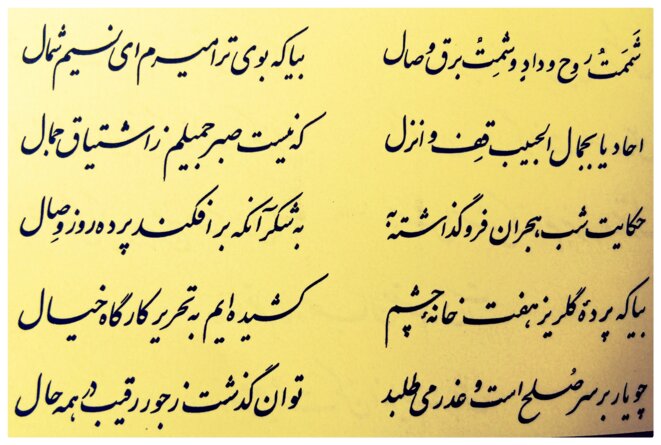 شَمَمتُ روح وداد و شمتُ برق وصال بیا که بوی ترا میرم ای نسیم شمال
احادیا بجمال الحبیب قف و انزل که نیست صبر جمیلم ز اشتیاق جمال
حکایت شب هجران فرو گذاشته به به شکر آنکه برافکند پرده روز وصال
بیا که پردهٔ گلریز هفت خانهٔ چشم کشیده ایم به تحریر کارگاه خیال
چو یار بر سر صلح است و عذر می طلبد توان گذشت ز جور رقیب در همه حال